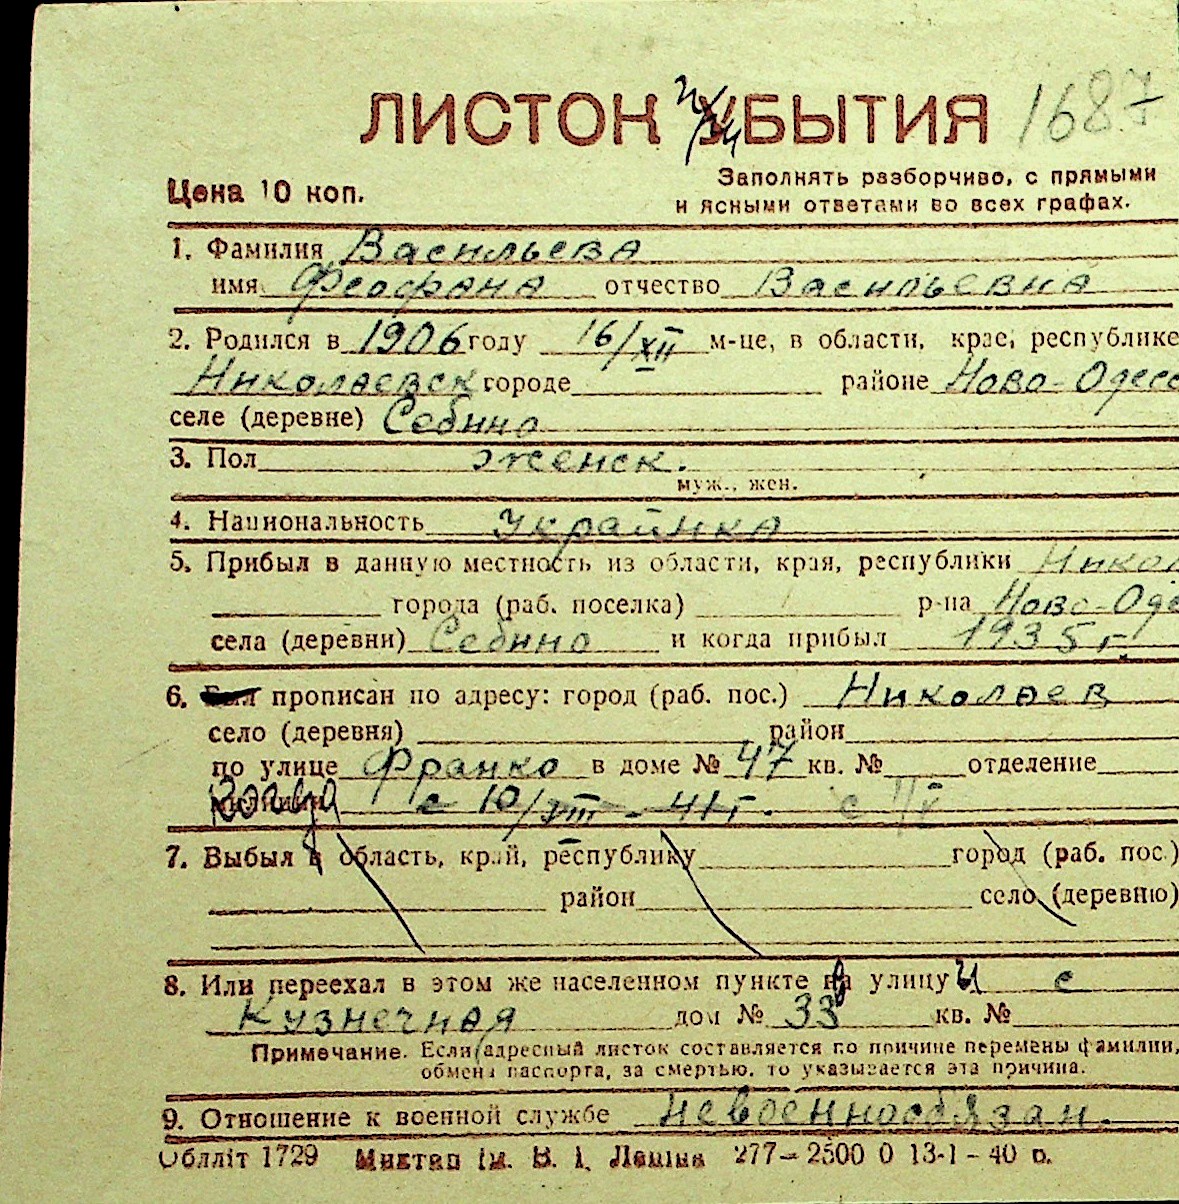 ЛИСТОК УБЫТИЯ 1687
Цена 10 коп.
Заполнять разборчиво, с прямыми
и ясными ответами во всех графах.
1. Фамилия Васильева
имя Феофана отчество Васильевна
2. Родился в 1906 году 16/XII м-це, в области, крае, республике
Николаевск городе районе Ново-Одесс
селе (деревне) Себино
3. Пол женск.
муж., жен.
4. Национальность Украинка
5. Прибыл в данную местность из области, края, республики Никол
города (раб. поселка) р-на Ново-Оде
села (деревни) Себино и когда прибыл 1935 г.
6. Был прописан по адресу: город (раб. пос.) Николаев
село (деревня) район
по улице Франко в доме № 47 кв. № отделение
милиции с 10/VIII - 41 г. с
7. Выбыл в область, край, республику город (раб. пос.)
район село (деревню)
8. Или переехал в этом же населенном пункте на улицу И с
Кузнечная дом № 33 кв. №
Примечание. Если адресный листок составляется по причине перемены фамилии,
обмена паспорта, за смертью, то указывается эта причина.
9. Отношение к военной службе невоеннообязан.
Обллiт 1729 Миктап iм. В. I. Ленiна 277–2500 0 13-1-40 р.